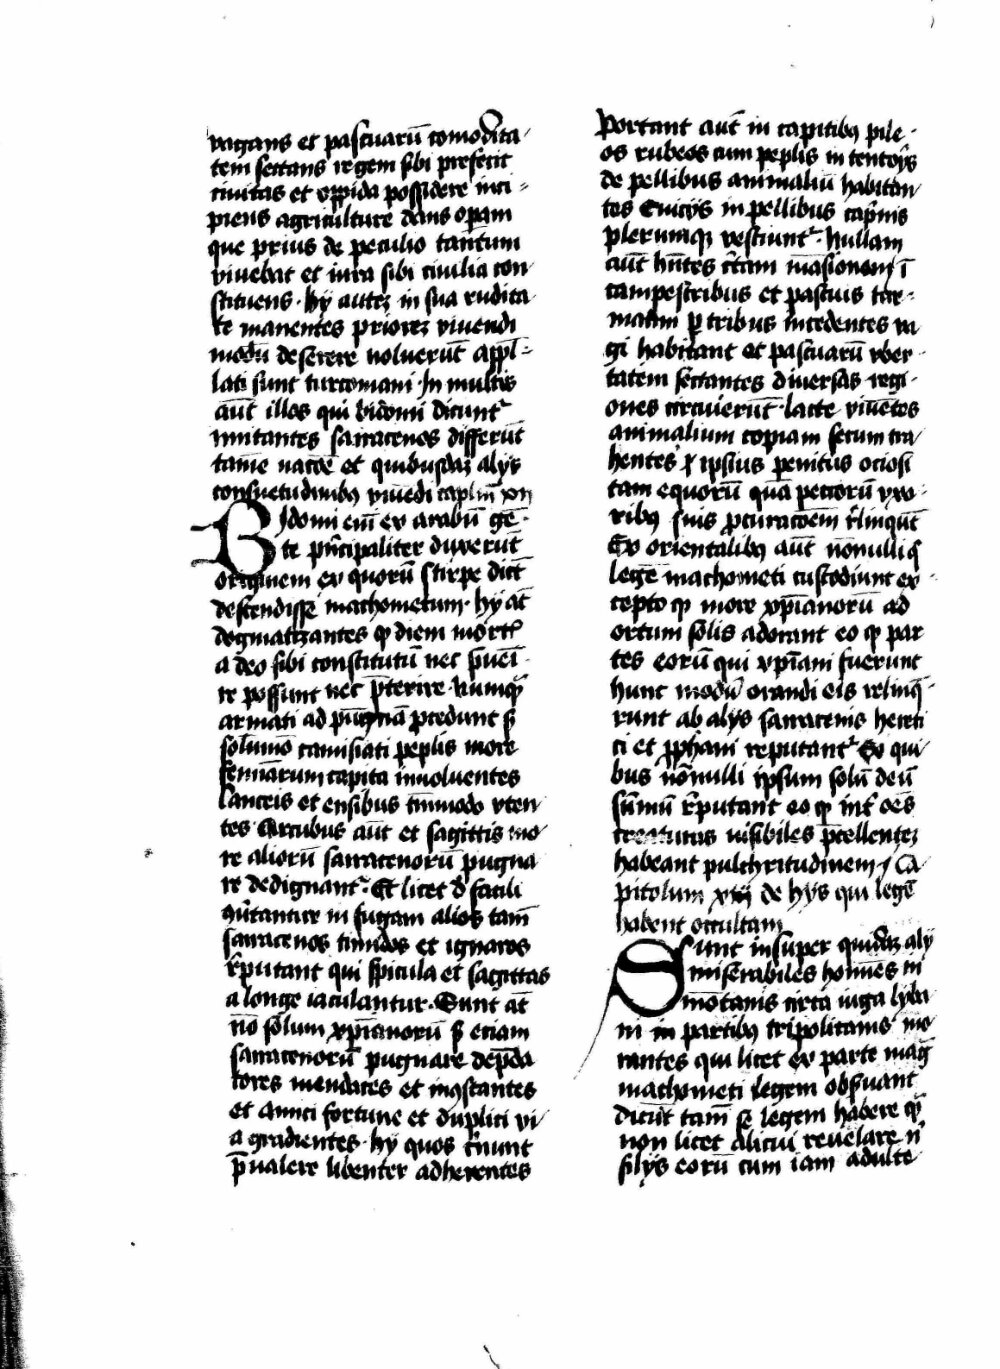 vagans et pascuarū comodita
tem sectans regem sibi prefecit
civitas et oppida possidere inci
piens agriculture dans opam
que prius de peculio tantum
vivebat et iura sibi civilia con
stituens. hÿ autez in sua rudita
te manentes priorez vivendi
modū deserere noluerūt appl̄
lati sunt turcomani. In multis
aūt illos qui bidomi dicunt᷑
imitantes sarracenos differūt
tamē natōe et quibusdaz alÿs
consuetudinibꝫ vivēdi caplm̄ xij
Bidomi em̄ ex arabū gē
te pn̄cipaliter duxerūt
originem ex quorū stirpe dict̄
descendisse machometum. hÿ at̄
dogmatizantes ꝙ diem mortꝭ
a deo sibi constitutū nec p̄vei
re possunt nec p̄terire. numqͣ
armati ad pugnā p̄cedunt sꝫ
solumō camisiati peplis more
femīarum capita involventes
lanceis et ensibus tm̄modo vten
tes Arcubus aūt et sagittis mo
re aliorū sarracenorū pugna
re dedignant᷑. Et licet d̄ facili
q̄ūtantur in fugam alios tam̄
sarracenos timidos et ignaros
r̄putant qui spicula et sagittas
a longe iaculantur. Sunt at̄
nō solum xp̄ianorū sꝫ etiam
sarracenorū pugnare dep̄da
tores mendaces et incōstantes
et amici fortune et duplici vi
a gradientes. hÿ quos cn̄unt
p̄valere libenter adherentes
Portant aūt in capitibꝫ pile
os rubeos cum peplis in tentorÿs
de pellibus animaliū habitan
tes Cuicÿs in pellibus cap̄nis
plerumqꝫ vestiunt᷑. Nullam
aūt hn̄tes c̄tam māsionem ī
campestribus et pascuis tur
matim ꝑ tribus incedentes va
gi habitant et pascuarū vber
tatem sectantes diversas regi
ones circuierūt. lacte vivētes
animalium copiam secum tra
hentes ipsius penitus ociosi
tam equorū quā pecorū vxo
ribꝫ suis ꝓcuratōem r̄linqūt
Ex orientalibꝫ aūt nōnulli qͥ
legē machometi custodiunt ex
cepto ꝙ more xp̄ianorū ad
ortum solis adorant eo ꝙ par
tes eorū qui xp̄iani fuerunt
hunc modū orandi eis relinq̄
runt ab alÿs sarracenis hereti
ci et ꝓphani reputant᷑ Ex qui
bus nōnulli ipsum solū deū
sūmū r̄putant eo ꝙ int᷑ oēs
creaturas visibiles p̄cellentez
habeant pulchritudinem. Ca
pitolum xiij de hÿs qui legē
habent occultam
Sunt insuper quidaz alÿ
miserabiles homīes in
mōtanis circa iuga lyba
ni in partibꝫ tripolitanis mo
rantes qui licet ex parte maḡ
machometi legem obs̄vant
dicūt tam̄ se legem habere qͣ̄
non licet alicui revelare nͥ
filÿs eorū cum iam adulte